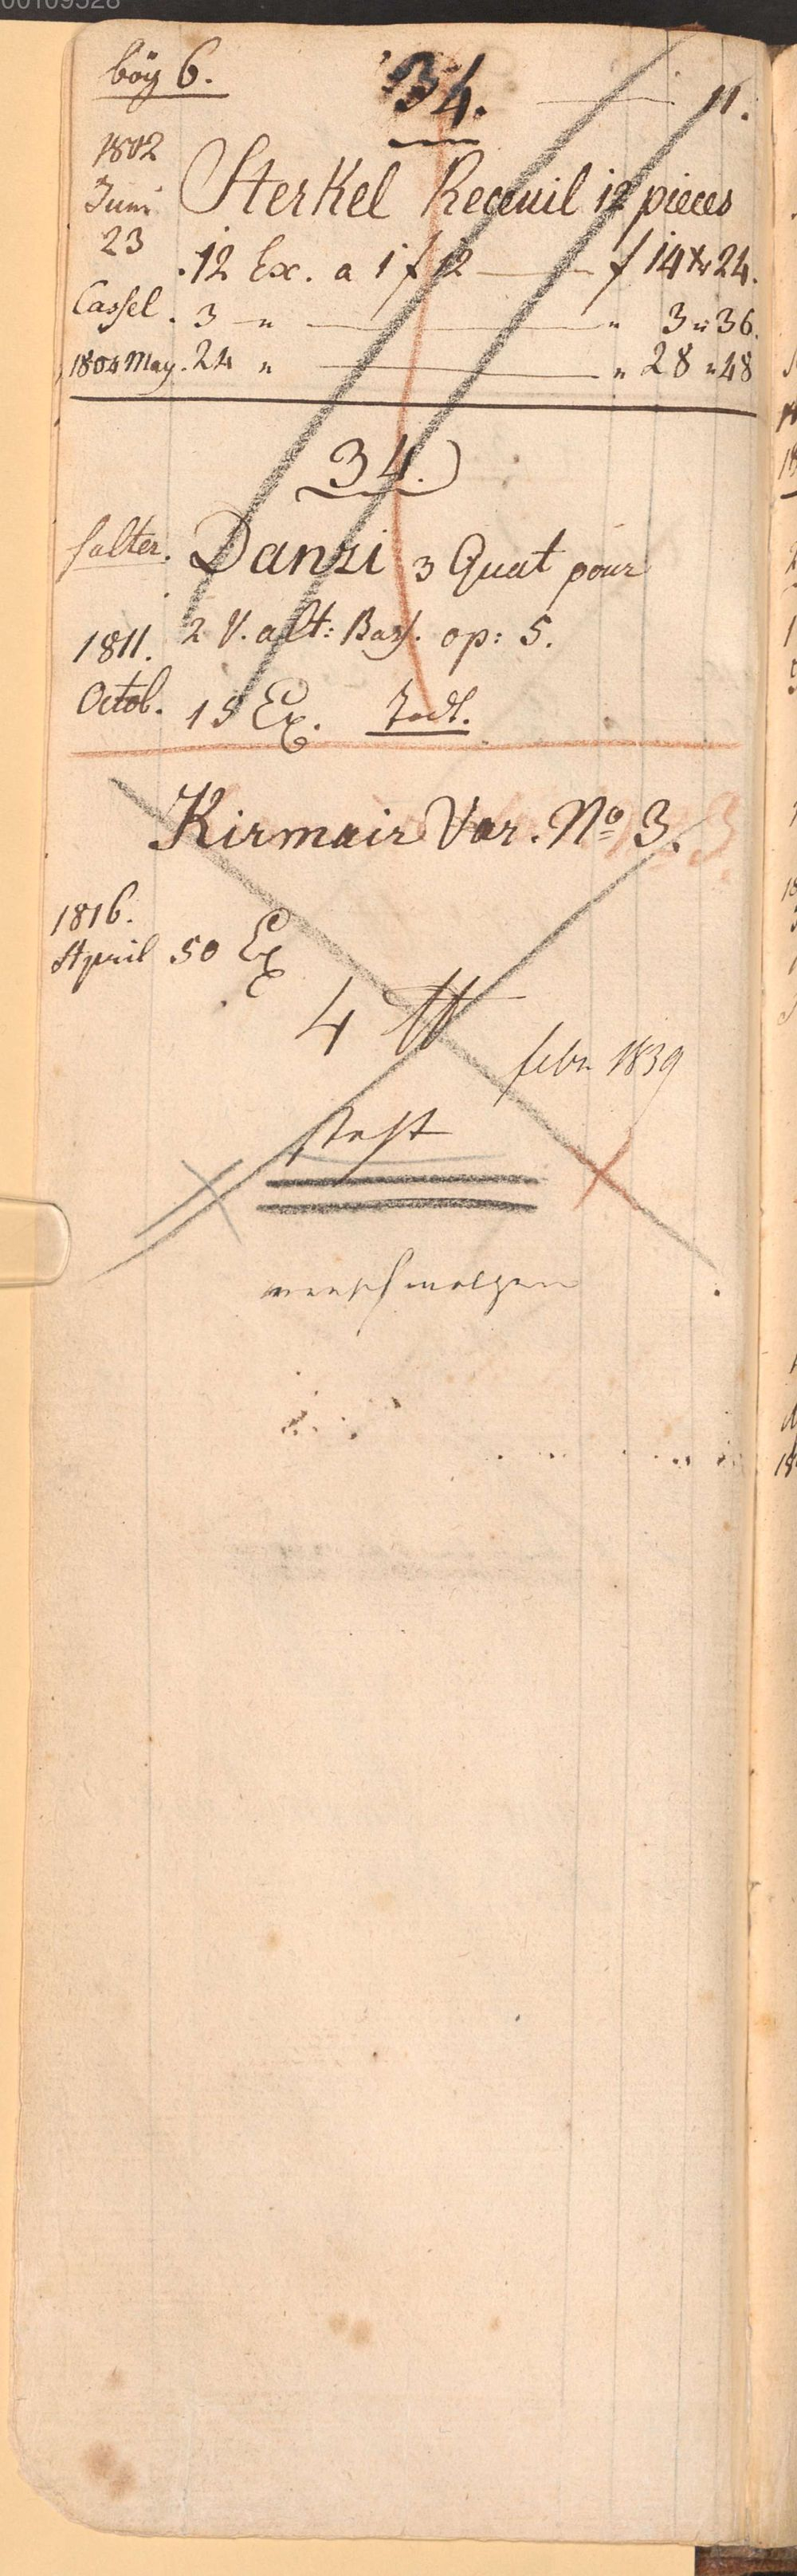 00109328
böÿ 6. 34. — 11.
1802 Sterkel Receuil 12 pieces
Juni
23 12 Ex. a 1 f 12 — f 14 Xr 24.
Cassel. 3 " — " 3 " 36.
1804 May. 24 " — " 28 " 48
34.
falter. Danzi 3 Quat pour
1811. 2 V. alt: Bass. op: 5.
Octob. 15 Ex.
Kirmair Var. No 3.
1816.
April 50 Ex
4
febr 1839
verschmolzen